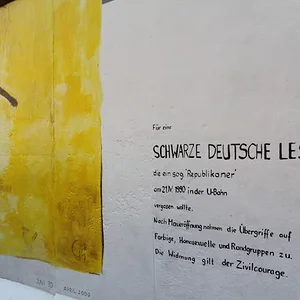 Für eine
SCHWARZE DEUTSCHE LES
die ein sog. 'Republikaner'
am 21.IV 1990 in der U-Bahn
vergasen wollte.
Nach Maueröffnung nahmen die Übergriffe auf
Farbige, Homosexuelle und Randgruppen zu.
Die Widmung gilt der Zivilcourage.